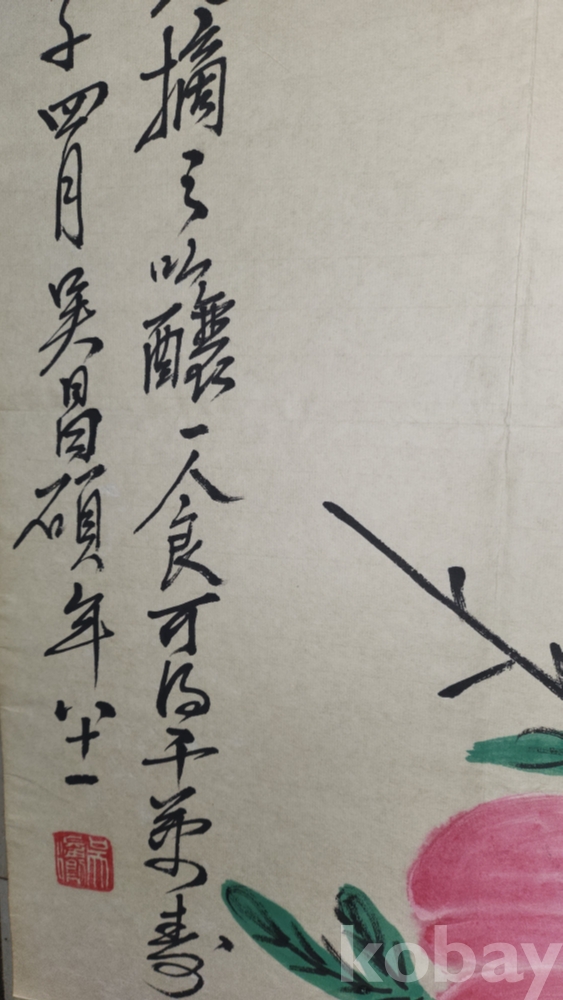 摘之以釀一人食可得千萬壽
子四月吳昌碩年八十一
kobay